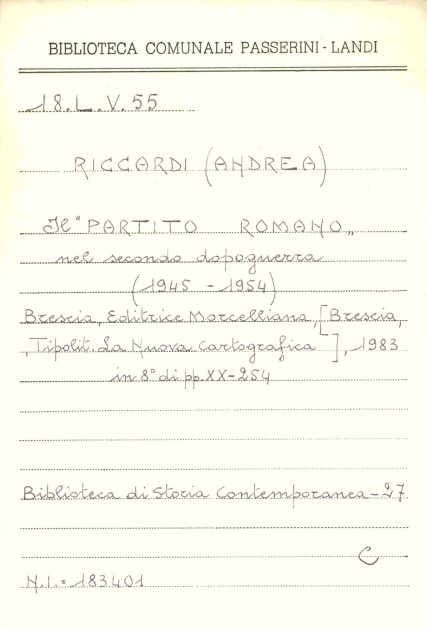 BIBLIOTECA COMUNALE PASSERINI-LANDI
18.L.V.55
RICCARDI (ANDREA)
Il "PARTITO ROMANO„
nel secondo dopoguerra
(1945 - 1954)
Brescia, Editrice Morcelliana, [Brescia,
, Tipolit. La Nuova Cartografica ], 1983
in 8° di pp. XX-254
Biblioteca di Storia Contemporanea - 27
C
N.I. = 183401